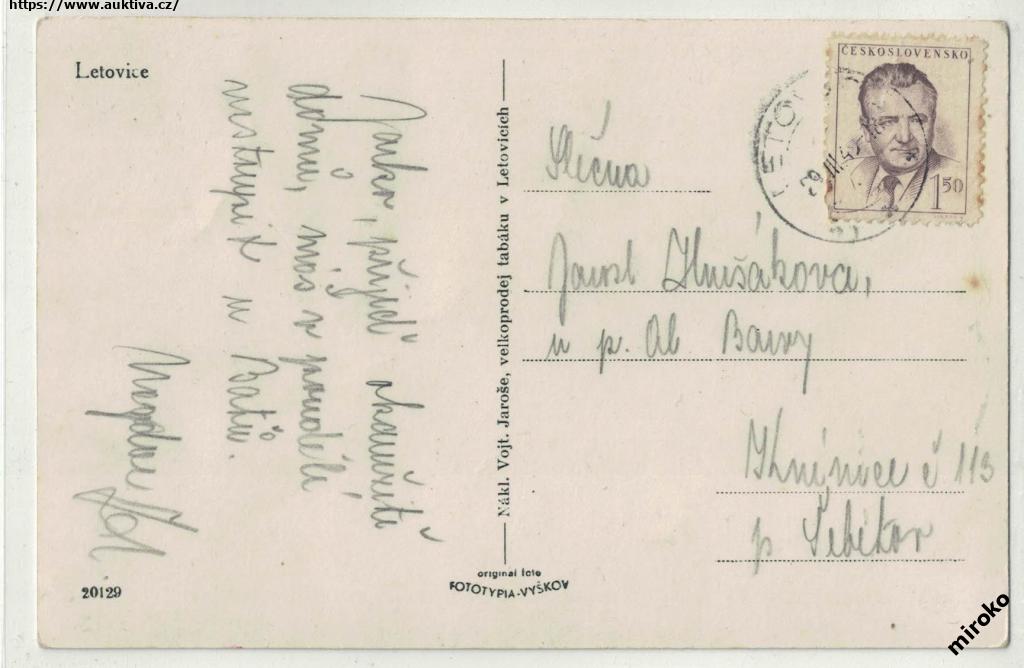 https://www.auktiva.cz/
Letovice
Jarko, přijeď okamžitě
domů, máš v pondělí
nastoupit u Bati.
Nákl. Vojt. Jaroše, velkoprodej tabáku v Letovicích
ČESKOSLOVENSKO
1 50
LETOV
29 III 4
Slečna
Jarosl Hlušákova,
u p. Ab
Kninice č 113
p Šebetov
20129
original foto
FOTOTYPIA-VYŠKOV
miroko